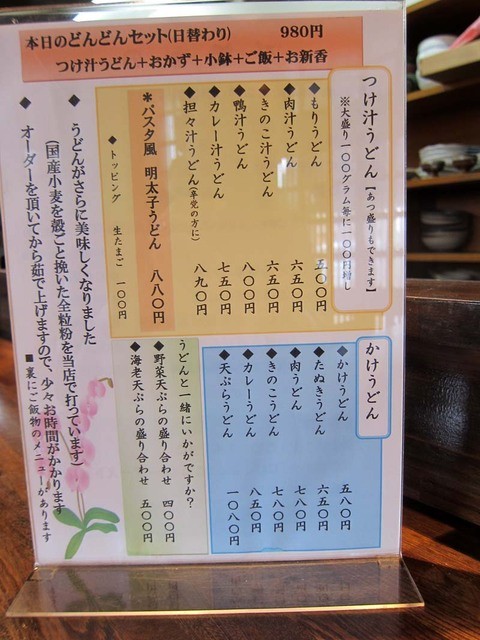 本日のどんどんセット(日替わり) 980円
つけ汁うどん+おかず+小鉢+ご飯+お新香
つけ汁うどん【あつ盛りもできます】
※大盛り一〇〇グラム毎に一〇〇円増し
◆もりうどん 五〇〇円
◆肉汁うどん 六五〇円
◆きのこ汁うどん 六五〇円
◆鴨汁うどん 八〇〇円
◆カレー汁うどん 七五〇円
◆担々汁うどん(辛党の方に) 八九〇円
*パスタ風 明太子うどん 八八〇円
◆トッピング 生たまご 一〇〇円
かけうどん
◆かけうどん 五八〇円
◆たぬきうどん 六五〇円
◆肉うどん 七八〇円
◆きのこうどん 七八〇円
◆カレーうどん 八五〇円
◆天ぷらうどん 一〇八〇円
うどんと一緒にいかがですか?
◆野菜天ぷらの盛り合わせ 四〇〇円
◆海老天ぷらの盛り合わせ 五〇〇円
◆うどんがさらに美味しくなりました
(国産小麦を殻ごと挽いた全粒粉を当店で打っています)
◆オーダーを頂いてから茹で上げますので、少々お時間がかかります
■裏にご飯物のメニューがあります